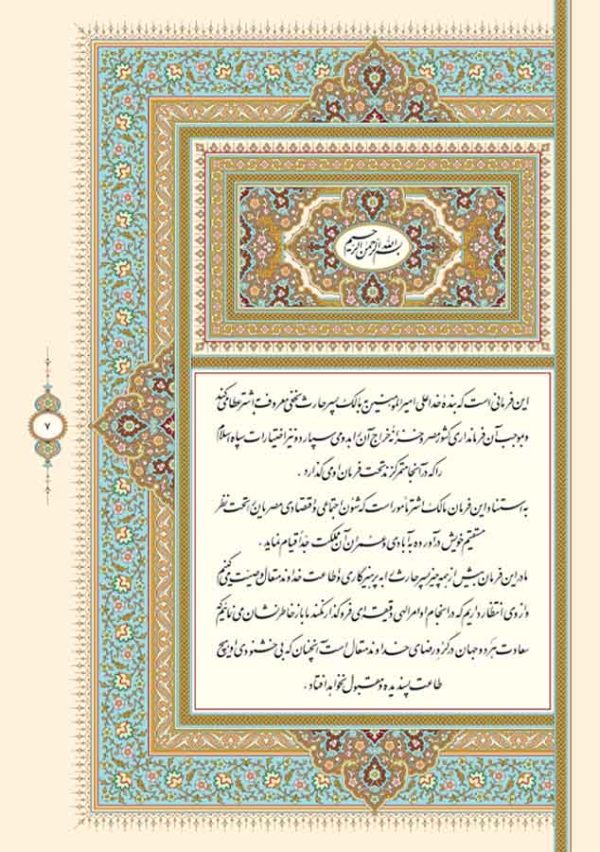 بسم الله الرحمن الرحیم
این فرمانی است که بنده خدا علی امیرالمومنین به مالک پسر حارث نخعی معروف به اشتر عطا می کند
و به موجب آن فرمانداری کشور مصر و خزانه خراج آن را بدو می سپارد و نیز اختیارات سپاه اسلام
را که در آنجا متمرکز به تحت فرمان او می گذارد .
به استناد این فرمان مالک اشتر مامور است که شئون اجتماعی و اقتصادی مصریان را تحت نظر
مستقیم خویش در آورده به آبادی و عمران آن مملکت خدا قیام نماید .
ما در این فرمان بیش از همه چیز پسر حارث را به پرهیزکاری و اطاعت خداوند متعال وصیت می کنیم
و از وی انتظار داریم که در انجام اوامر الهی دقیقه ای فروگذار نکند ما باز خاطرنشان می نمائیم که
سعادت هر دو جهان در گرو رضای خداوند متعال است آنچنان که بی خشنودی او هیچ
طاعت پسندیده و مقبول نخواهد افتاد .
۷